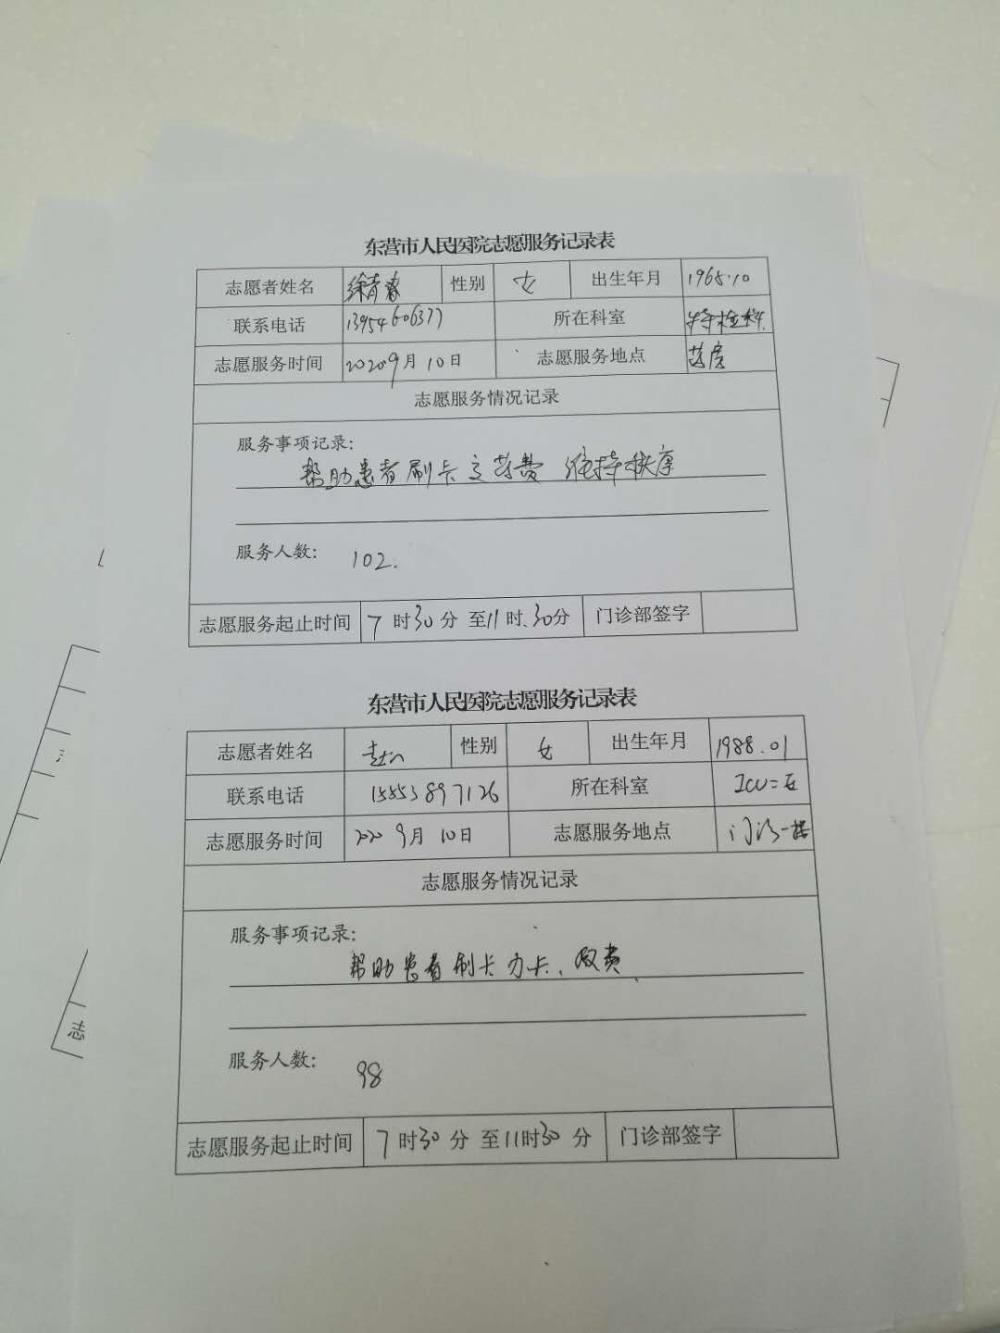 东营市人民医院志愿服务记录表
志愿者姓名 徐青 性别 女 出生年月 1965.10
联系电话 13954606377 所在科室 特检科.
志愿服务时间 2020 9月 10日 志愿服务地点 药房
志愿服务情况记录
服务事项记录:
帮助患者刷卡交药费 维持秩序
服务人数: 102.
志愿服务起止时间 7 时30 分 至11 时.30分 门诊部签字
东营市人民医院志愿服务记录表
志愿者姓名 性别 女 出生年月 1988.01
联系电话 15553897126 所在科室 ICU二区
志愿服务时间 2020 9月 10日 志愿服务地点 门诊一楼
志愿服务情况记录
服务事项记录:
帮助患者刷卡办卡、取费
服务人数: 98
志愿服务起止时间 7 时30 分 至11时30 分 门诊部签字
志